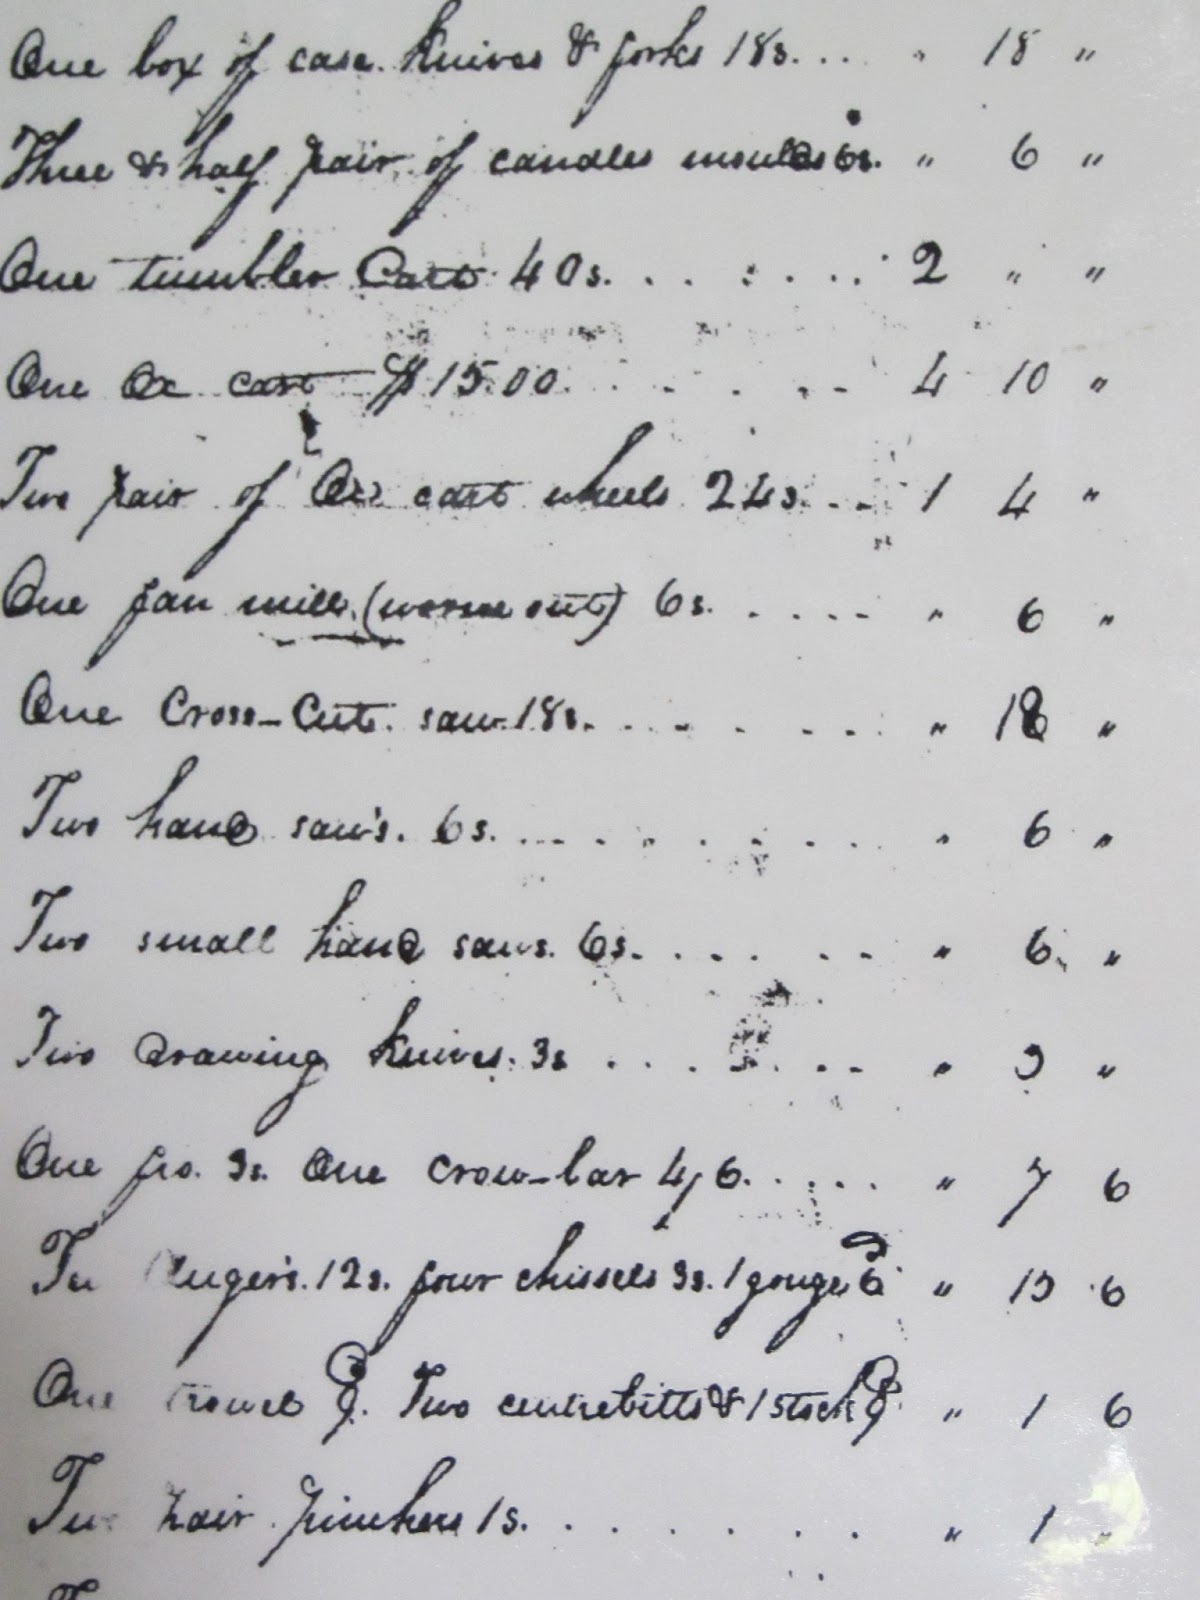 One box of case knives & forks 18s. . . . " 18 "
Three & half pair of candles moulds 6s. " 6 "
One tumbler Cart 40s. . . . . . . . 2 " "
One Ox cart $15.00. . . . . . . 4 10 "
Two pair of Ox cart wheels 24s. . . 1 4 "
One fan mill (worne out) 6s. . . . . " 6 "
One Cross-Cut saw 18s. . . . . . . . " 18 "
Two hand saw's. 6s. . . . . . . . . . " 6 "
Two small hand saws. 6s. . . . . . " 6 "
Two drawing knives. 3s . . . . . . . " 3 "
One fro. 3s. One crow-bar 4/6. . . . . " 7 6
Two Auger's. 12s. four chissels 3s. 1 gouge 6d " 15 6
One trowel 9d. Two centrebitts & 1 stock 9d " 1 6
Two pair pinchers 1s. . . . . . . . " 1 "